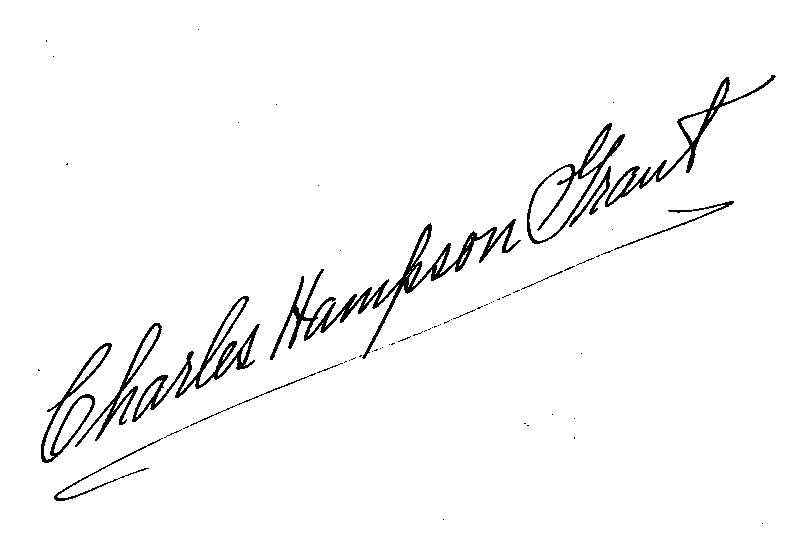 Charles Hampson Grant